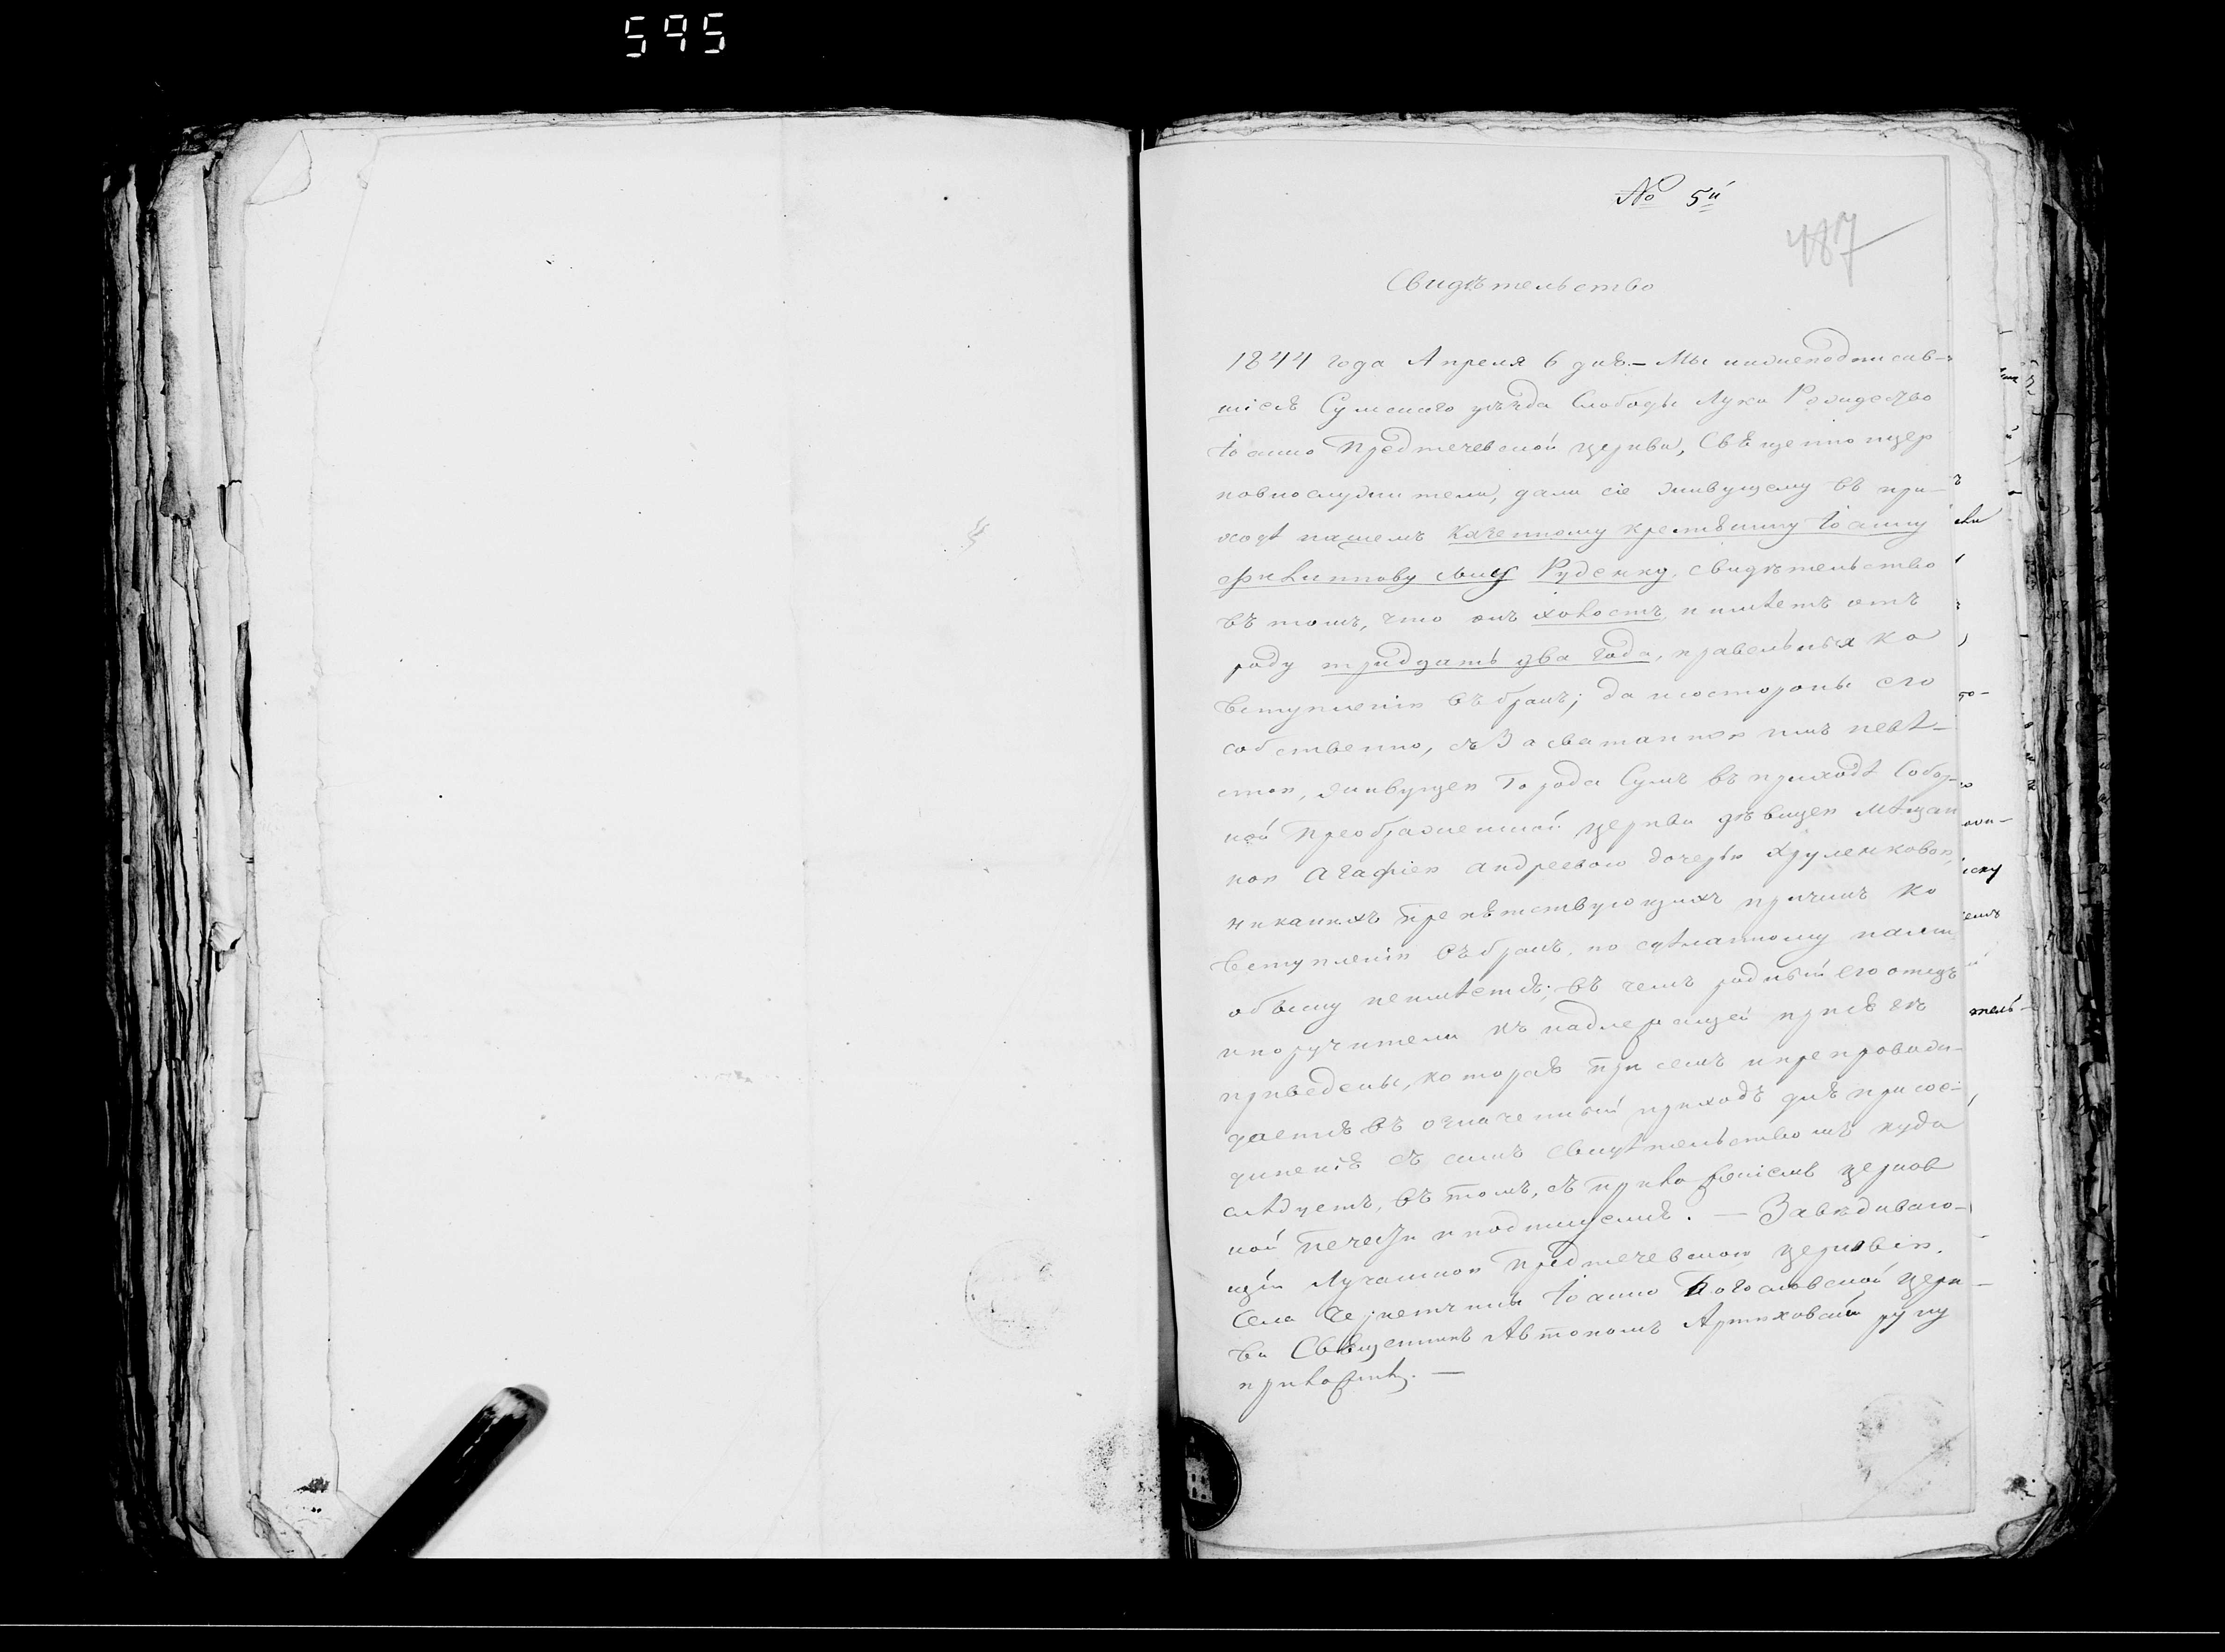 595
№ 5й
487
Свидѣтельство
1844 года Апреля 6 дня. – Мы нижеподписав-
шіеся Сумскаго уѣзда Слободы Луки Рождество
Іоанно Предтечевской церкви, Священно цер
ковнослужители, дали сіе живущему въ при-
ходѣ нашемъ Казенному крестьянину Іоанну
Филиппову сыну Руденку, свидѣтельство
въ томъ, что онъ холостъ, и имѣетъ отъ
роду тридцать два года, правельныя ко
вступленію въ бракъ; да и состороны его
собственно, съ Засватанною имъ невѣ-
стою, живущею Города Сумъ въ приходѣ Собор-
ной Преображенской церкви дѣвицею мѣщан
кою Агафіею Андреевою дочерью
никакихъ препятствующихъ причинъ ко
вступленію въ бракъ, по сдѣланному нами
обыску неимѣется; въ чемъ родный его отецъ
и поручители къ надлежащей присягѣ
приведены, которая при семъ и препровож-
дается въ означенный приходъ для присое-
диненія съ симъ свидѣтельствомъ куда
слѣдуетъ, въ томъ, съ приложеніемъ церков
ной печати и подпишемся. – Завѣдываю-
щій Лучанскою Предтечевскою церковію,
Села Іоанно Богословской церк-
ви Священникъ Автономъ Артюховскій руку
приложилъ. –